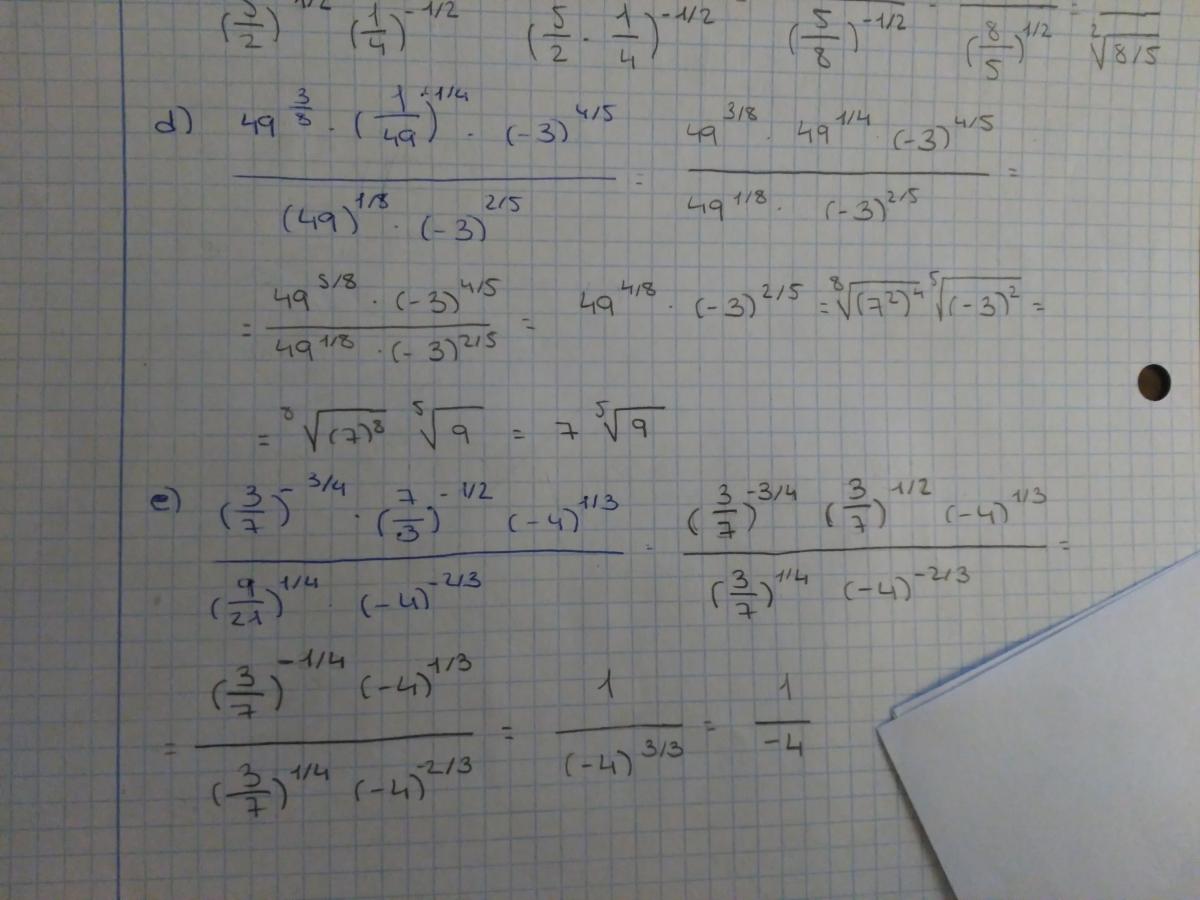 (5/2)^-1/2 (1/4)^-1/2 (5/2 · 1/4)^-1/2 (5/8)^-1/2 (8/5)^1/2 = ²√(8/5)
d) (49^(3/8) · (1/49)^-1/4 · (-3)^4/5) / ((49)^1/8 · (-3)^2/5) = (49^3/8 · 49^1/4 · (-3)^4/5) / (49^1/8 · (-3)^2/5) =
= (49^5/8 · (-3)^4/5) / (49^1/8 · (-3)^2/5) = 49^4/8 · (-3)^2/5 = ⁸√((7²)⁴) ⁵√((-3)²) =
= ⁸√((7)⁸) ⁵√9 = 7 ⁵√9
e) ((3/7)^-3/4 · (7/3)^-1/2 (-4)^1/3) / ((9/21)^1/4 · (-4)^-2/3) = ((3/7)^-3/4 (3/7)^1/2 (-4)^1/3) / ((3/7)^1/4 (-4)^-2/3) =
= ((3/7)^-1/4 (-4)^1/3) / ((3/7)^1/4 (-4)^-2/3) = 1 / (-4)^3/3 = 1 / -4